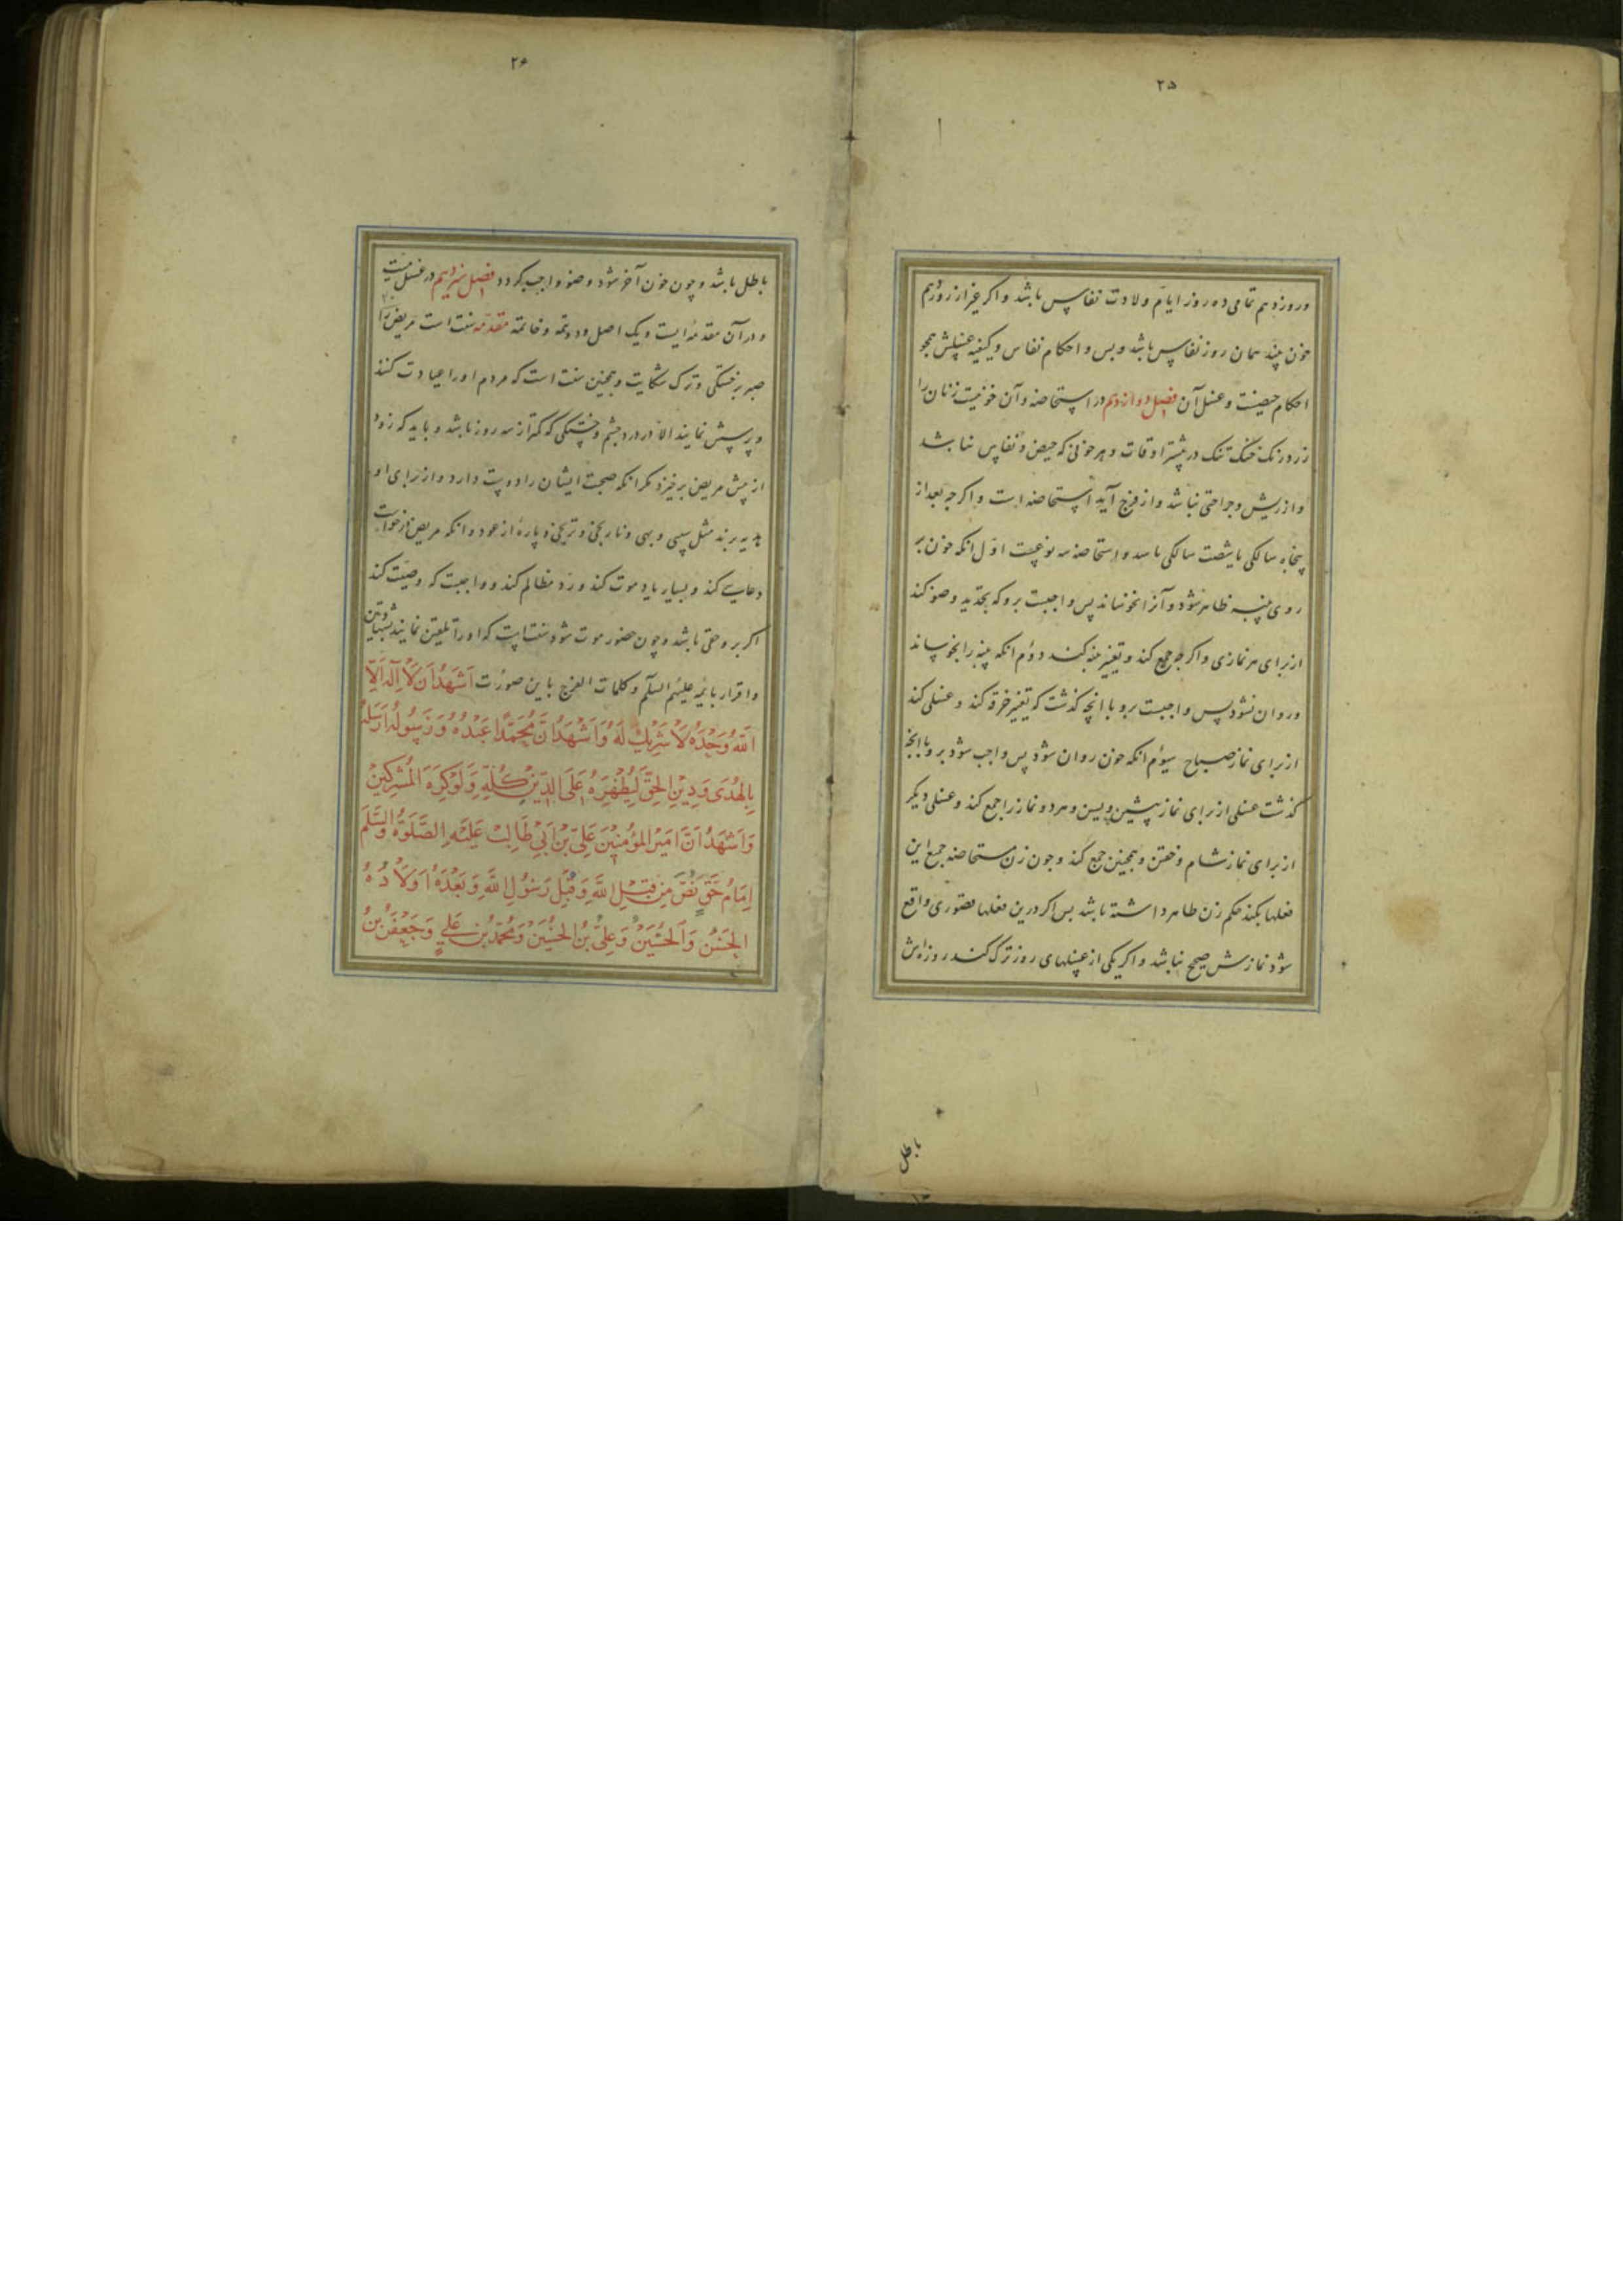 ۲۵
وروز دهم تمامی ده روز ایام ولادت نفاس باشد و اکر غیر از روز دهم
خون بیند همان روز نفاس باشد و بس و احکام نفاس و کیفیه غسلش همجو
احکام حیضست و غسل آن فصل دوازدهم در استحاضه و آن خونیست زنان را
زرد رنک خنک تنک در بیشتر اوقات و هر خونی که حیض و نفاس نباشد
و از ریش و جراحتی نباشد و از فرج آید استحاضه است و اکر جه بعد از
پنجاه سالکی یا شصت سالکی باشد و استحاضه سه نوعست اول انکه خون بر
روی پنبه ظاهر شود و آنرا نخوساند پس واجبست برو که تجدید وضو کند
از برای هر نمازی و اکر جه جمع کند و تغییر پنبه کند دوم انکه پنبه را بخوساند
و روان نشود پس واجبست برو با انچه کذشت که تغییر خرقه کند و غسلی کند
از برای نماز صباح سیوم انکه خون روان شود پس واجب شود برو با انچه
کذشت غسلی از برای نماز پیشین و پسین و هر دو نماز را جمع کند و غسلی دیکر
از برای نماز شام و خفتن و همجنین جمع کند و جون زن مستحاضه جمع این
فعلها بکند حکم زن طاهر داشته باشد بس اکر درین فعلها قصوری واقع
شود نمازش صحیح نباشد و اکر یکی از غسلهای روز ترک کند روزه اش
باطل
۲۶
باطل باشد و چون خون آخر شود وضو واجب کردد فصل سیزدهم در غسل میت
و در آن مقدمه ایست و یک اصل و دو تتمه و خاتمه مقدمه سنت است مریض را
صبر بر خستکی و ترک شکایت و همجنین سنت است که مردم او را عیادت کنند
و پرسش نمایند الا در درد جشم و خستکی که کمتر از سه روز باشد و باید که زود
از پیش مریض برخیزد مکر انکه صحبت ایشان را دوست دارد و از برای او
هدیه برند مثل سیبی و بهی و نارنجی و ترنجی و پاره از عود و انکه مریض درخواست
دعایی کند و بسیار یاد موت کند و رد مظالم کند و واجبست که وصیت کند
اکر برو حقی باشد و چون حضور موت شود سنتست که او را تلقین نمایند بشهادتین
و اقرار بائمه علیهم السلم و کلمات الفرج باین صورت اَشْهَدُ اَن لَا اِلهَ اِلَّا
اللهُ وَحْدَهُ لَا شَرِیکَ لَهُ وَ اَشْهَدُ اَنَّ مُحَمَّدًا عَبْدُهُ وَ رَسُولُهُ اَرْسَلَهُ
بِالهُدَی وَ دِینِ الحَقِّ لِیُظْهِرَهُ عَلَی الدِّینِ کُلِّهِ وَ لَوْ کَرِهَ المُشْرِکِینَ
وَ اَشْهَدُ اَنَّ اَمِیرَ المُؤمِنِینَ عَلِیَّ بْنَ اَبِی طَالِبٍ عَلَیْهِ الصَّلَوةُ وَ السَّلَم
اِمَامُ حَقٍّ نَصٌّ مِن قِبَلِ اللهِ وَ قِبَلِ رَسُولِ اللهِ وَ بَعْدَهُ اَولَادُهُ
الحَسَنُ وَ الحُسَیْنُ وَ عَلِیُّ بْنُ الحُسَیْنِ وَ مُحَمَّدُ بْنُ عَلِیٍّ وَ جَعْفَرُ بْنُ